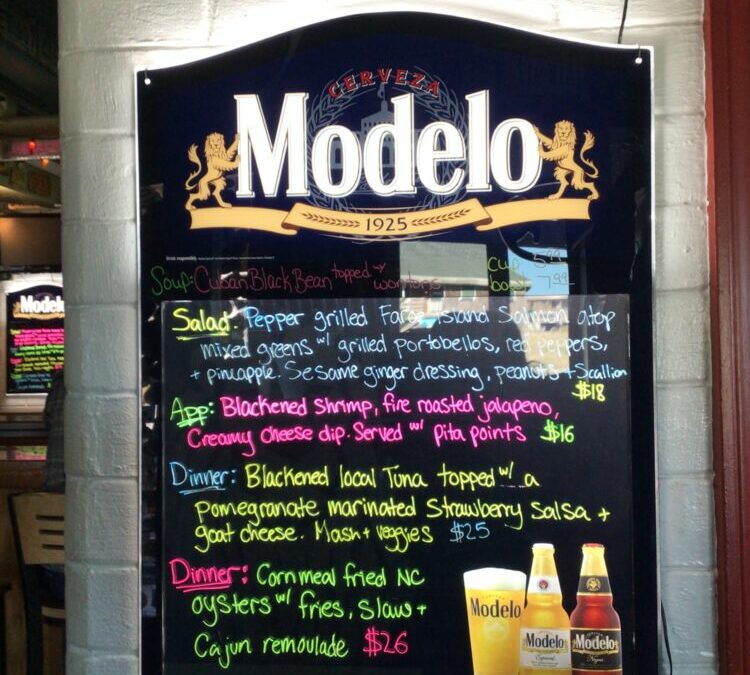 CERVEZA
Modelo
1925
Soup: Cuban Black Bean topped w/ wontons
Cup 5.99
bowl 7.99
Salad: Pepper grilled Faroe Island Salmon atop
mixed greens w/ grilled portobellos, red peppers,
+ pineapple. Sesame ginger dressing, peanuts + Scallion
$18
App: Blackened Shrimp, fire roasted jalapeno,
Creamy cheese dip. Served w/ pita points $16
Dinner: Blackened local Tuna topped w/ a
pomegranate marinated Strawberry Salsa +
goat cheese. Mash + veggies $25
Dinner: Cornmeal fried NC
oysters w/ fries, Slaw +
Cajun remoulade $26
Modelo
Modelo
Especial
Modelo
Negra
Modelo